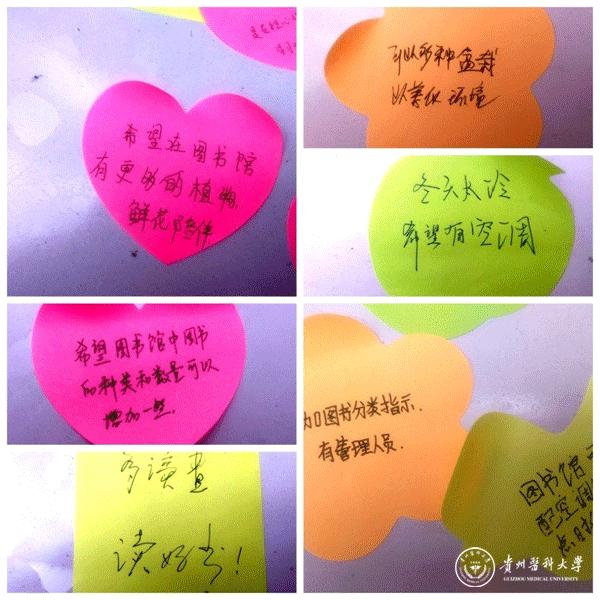 希望在图书馆
有更多的植物,
鲜花陪伴
可以多种盆栽
以美化环境
冬天太冷
希望有空调
希望图书馆中图书
的种类和数量可以
增加一些.
加图书分类指示.
有管理人员.
图书馆
配空调
多读书
读好书!
貴州醫科大學
GUIZHOU MEDICAL UNIVERSITY